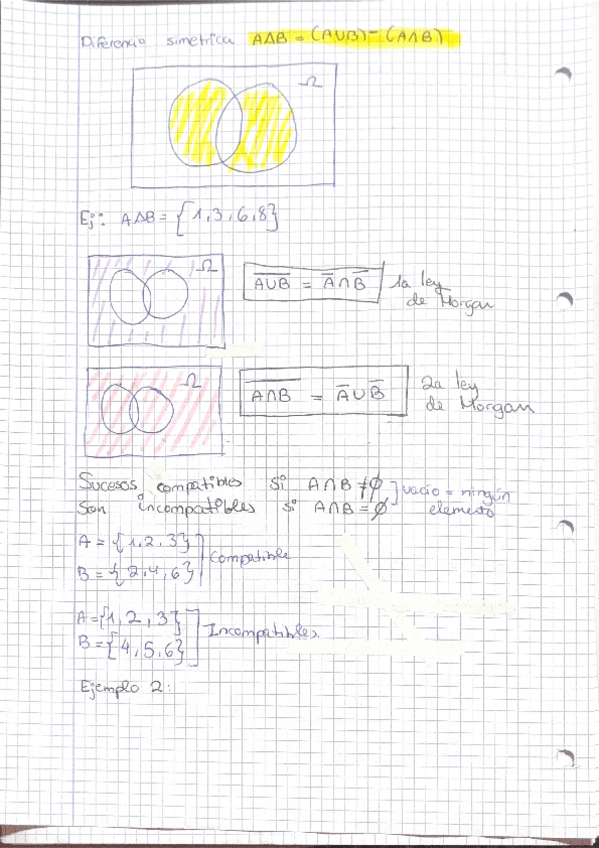 Diferencia simetrica AΔB = (A∪B) - (A∩B)
Ω
Ej: AΔB = {1,3,6,8}
Ω
A∪B̅ = A̅∩B̅ 1a ley
de Morgan
Ω
A∩B̅ = A̅∪B̅ 2a ley
de Morgan
Sucesos compatibles si A∩B ≠ ∅ ] vacio = ningún
Son incompatibles si A∩B = ∅ elemento
A = {1,2,3}
B = {2,4,6} ] Compatible
A = {1,2,3}
B = {4,5,6} ] Incompatibles.
Ejemplo 2: